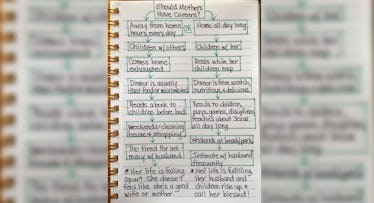 Should Mothers
Have Careers?
Away from home
hours every day
OR
Home all day long
Children w/others
Children w/ her
Comes home
exhausted
Rests while her
children nap
Dinner is usually
fast food or microwaved
Dinner is from scratch,
nutritious, & delicious
Reads a book to
children before bed
Reads to children,
plays games, disciplines,
teaches about Jesus
all day long
Weekends = cleaning
house & shopping
Weekends at beach/park
Too tired for inti-
macy w/ husband
Intimate w/ husband
frequently
* Her life is falling
apart. She doesn't
feel like she's a good
wife or mother.
* Her life is fulfilling.
Her husband and
children rise up &
call her blessed!